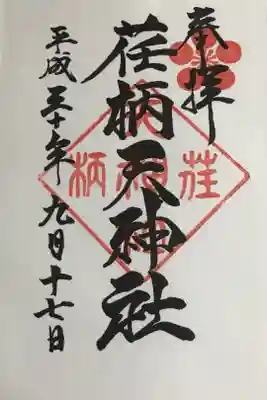 奉拝
荏柄天神社
平成三十年九月十七日